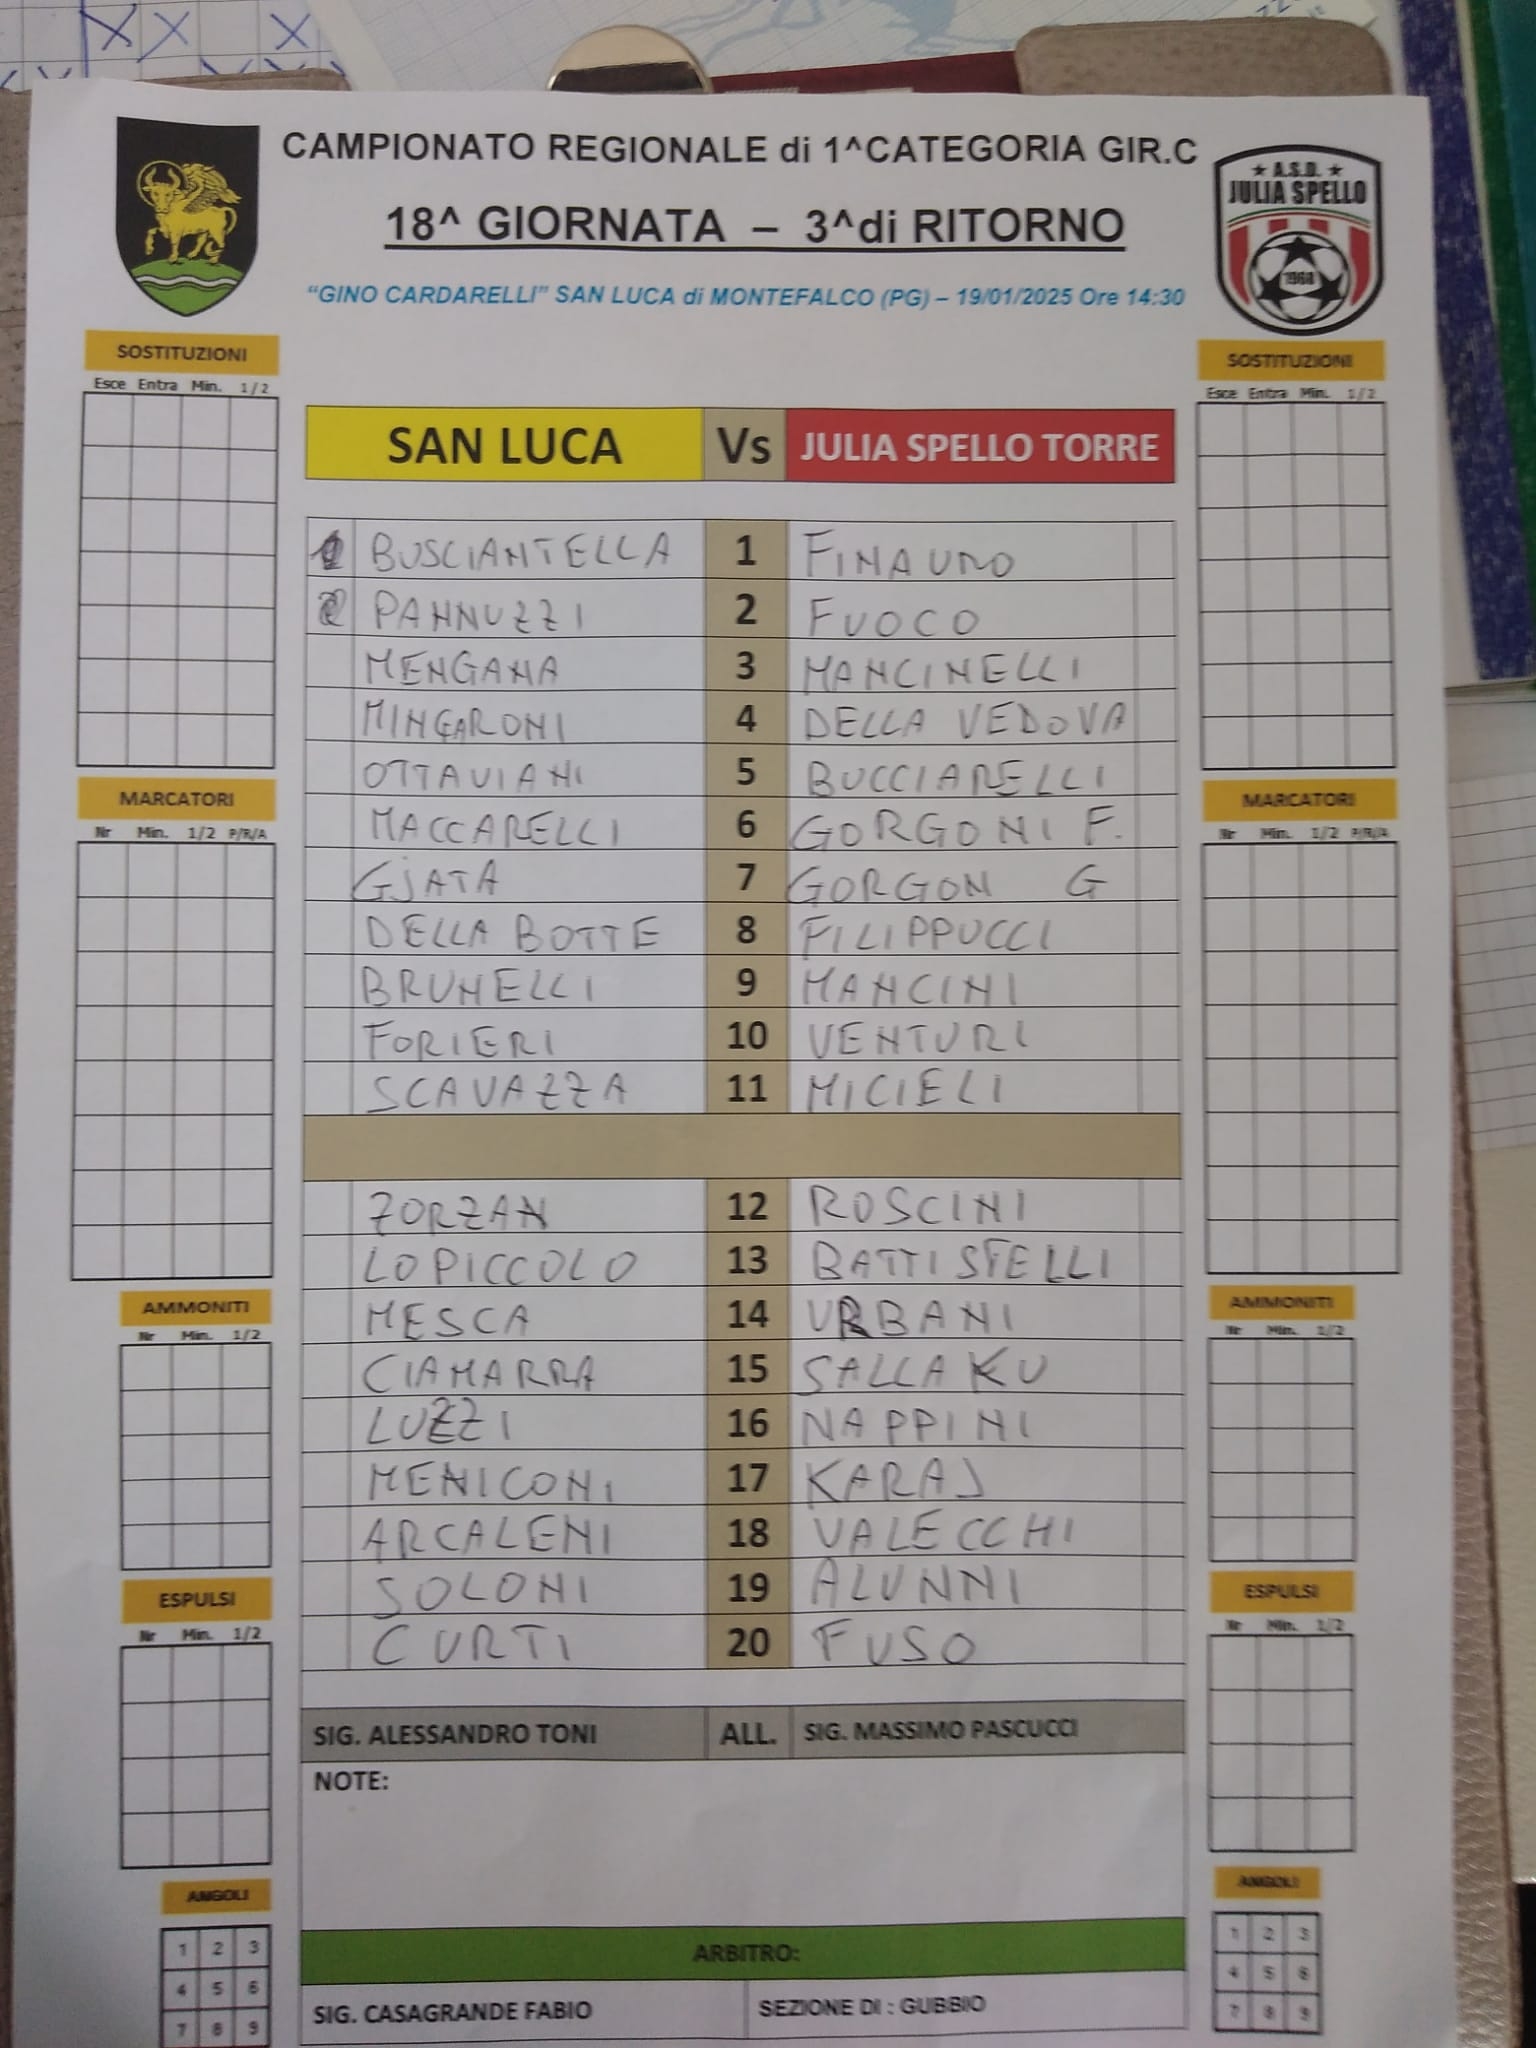 CAMPIONATO REGIONALE di 1^CATEGORIA GIR.C
18^ GIORNATA – 3^di RITORNO
"GINO CARDARELLI" SAN LUCA di MONTEFALCO (PG) – 19/01/2025 Ore 14:30
★ A.S.D. ★
JULIA SPELLO
1968
SOSTITUZIONI
Esce Entra Min. 1/2
SOSTITUZIONI
Esce Entra Min. 1/2
SAN LUCA Vs JULIA SPELLO TORRE
1 BUSCIANTELLA 1 FINAURO
2 PANNUZZI 2 FUOCO
MENGANA 3 MANCINELLI
MINGARONI 4 DELLA VEDOVA
OTTAVIANI 5 BUCCIARELLI
MACCARELLI 6 GORGONI F.
GJATA 7 GORGONI G
DELLA BOTTE 8 FILIPPUCCI
BRUNELLI 9 MANCINI
FORIERI 10 VENTURI
SCAVAZZA 11 MICIELI
ZORZAN 12 ROSCINI
LOPICCOLO 13 BATTISTELLI
MESCA 14 URBANI
CIAMARRA 15 SALLAKU
LUZZI 16 NAPPINI
MENICONI 17 KARAJ
ARCALENI 18 VALECCHI
SOLONI 19 ALUNNI
CURTI 20 FUSO
MARCATORI
Nr Min. 1/2 P/R/A
MARCATORI
Nr Min. 1/2 P/R/A
AMMONITI
Nr Min. 1/2
AMMONITI
Nr Min. 1/2
ESPULSI
Nr Min. 1/2
ESPULSI
Nr Min. 1/2
SIG. ALESSANDRO TONI ALL. SIG. MASSIMO PASCUCCI
NOTE:
ANGOLI
1 2 3
4 5 6
7 8 9
ANGOLI
1 2 3
4 5 6
7 8 9
ARBITRO:
SIG. CASAGRANDE FABIO SEZIONE DI : GUBBIO